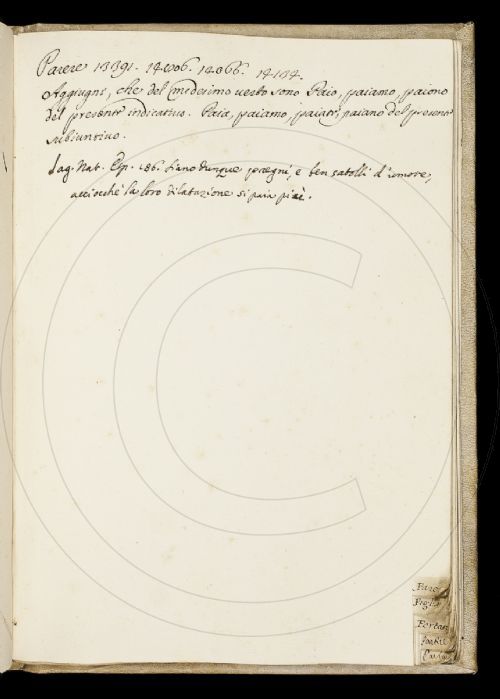 Parere 13391. 14006. 14066. 14104.
Aggiugni, che del medesimo verbo sono Paio, paiamo, paiono
del presente indicativo. Paia, paiamo, paiate, paiano del presente
subiuntivo.
Sag. Nat. Esp. 186. siano dunque pregni, e ben satolli d'umore,
acciocchè la loro dilatazione si paia più.